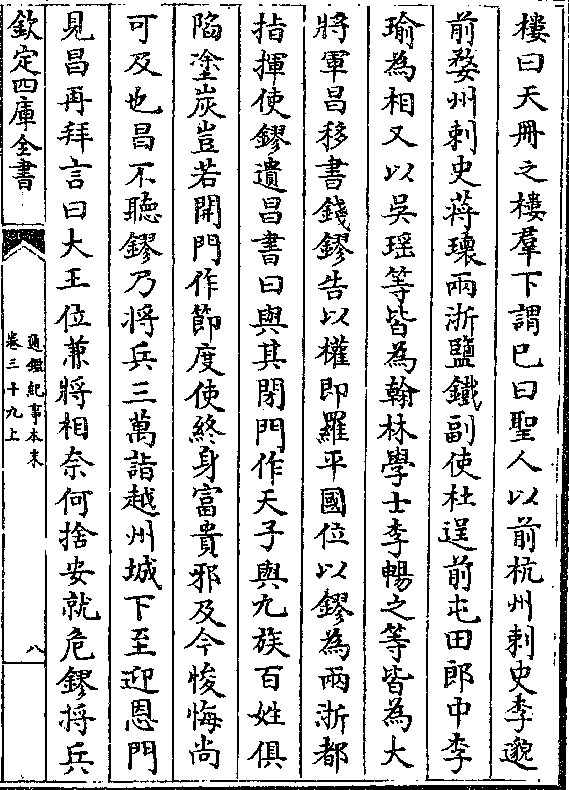 樓曰天冊之樓羣下謂已曰聖人以前杭州刺史李邈
前婺州刺史蔣瓌兩浙鹽鐵副使杜逞前屯田郎中李
瑜為相又以吳瑶等皆為翰林學士李暢之等皆為大
將軍昌移書錢鏐告以權即羅平國位以鏐為兩浙都
指揮使鏐遺昌書曰與其閉門作天子與九族百姓俱
陷塗炭豈若開門作節度使終身富貴邪及今悛悔尚
可及也昌不聽鏐乃將兵三萬詣越州城下至迎恩門
見昌再拜言曰大王位兼將相奈何捨安就危鏐將兵
欽定四庫全書
通鑑紀事本末
卷三十九上
八